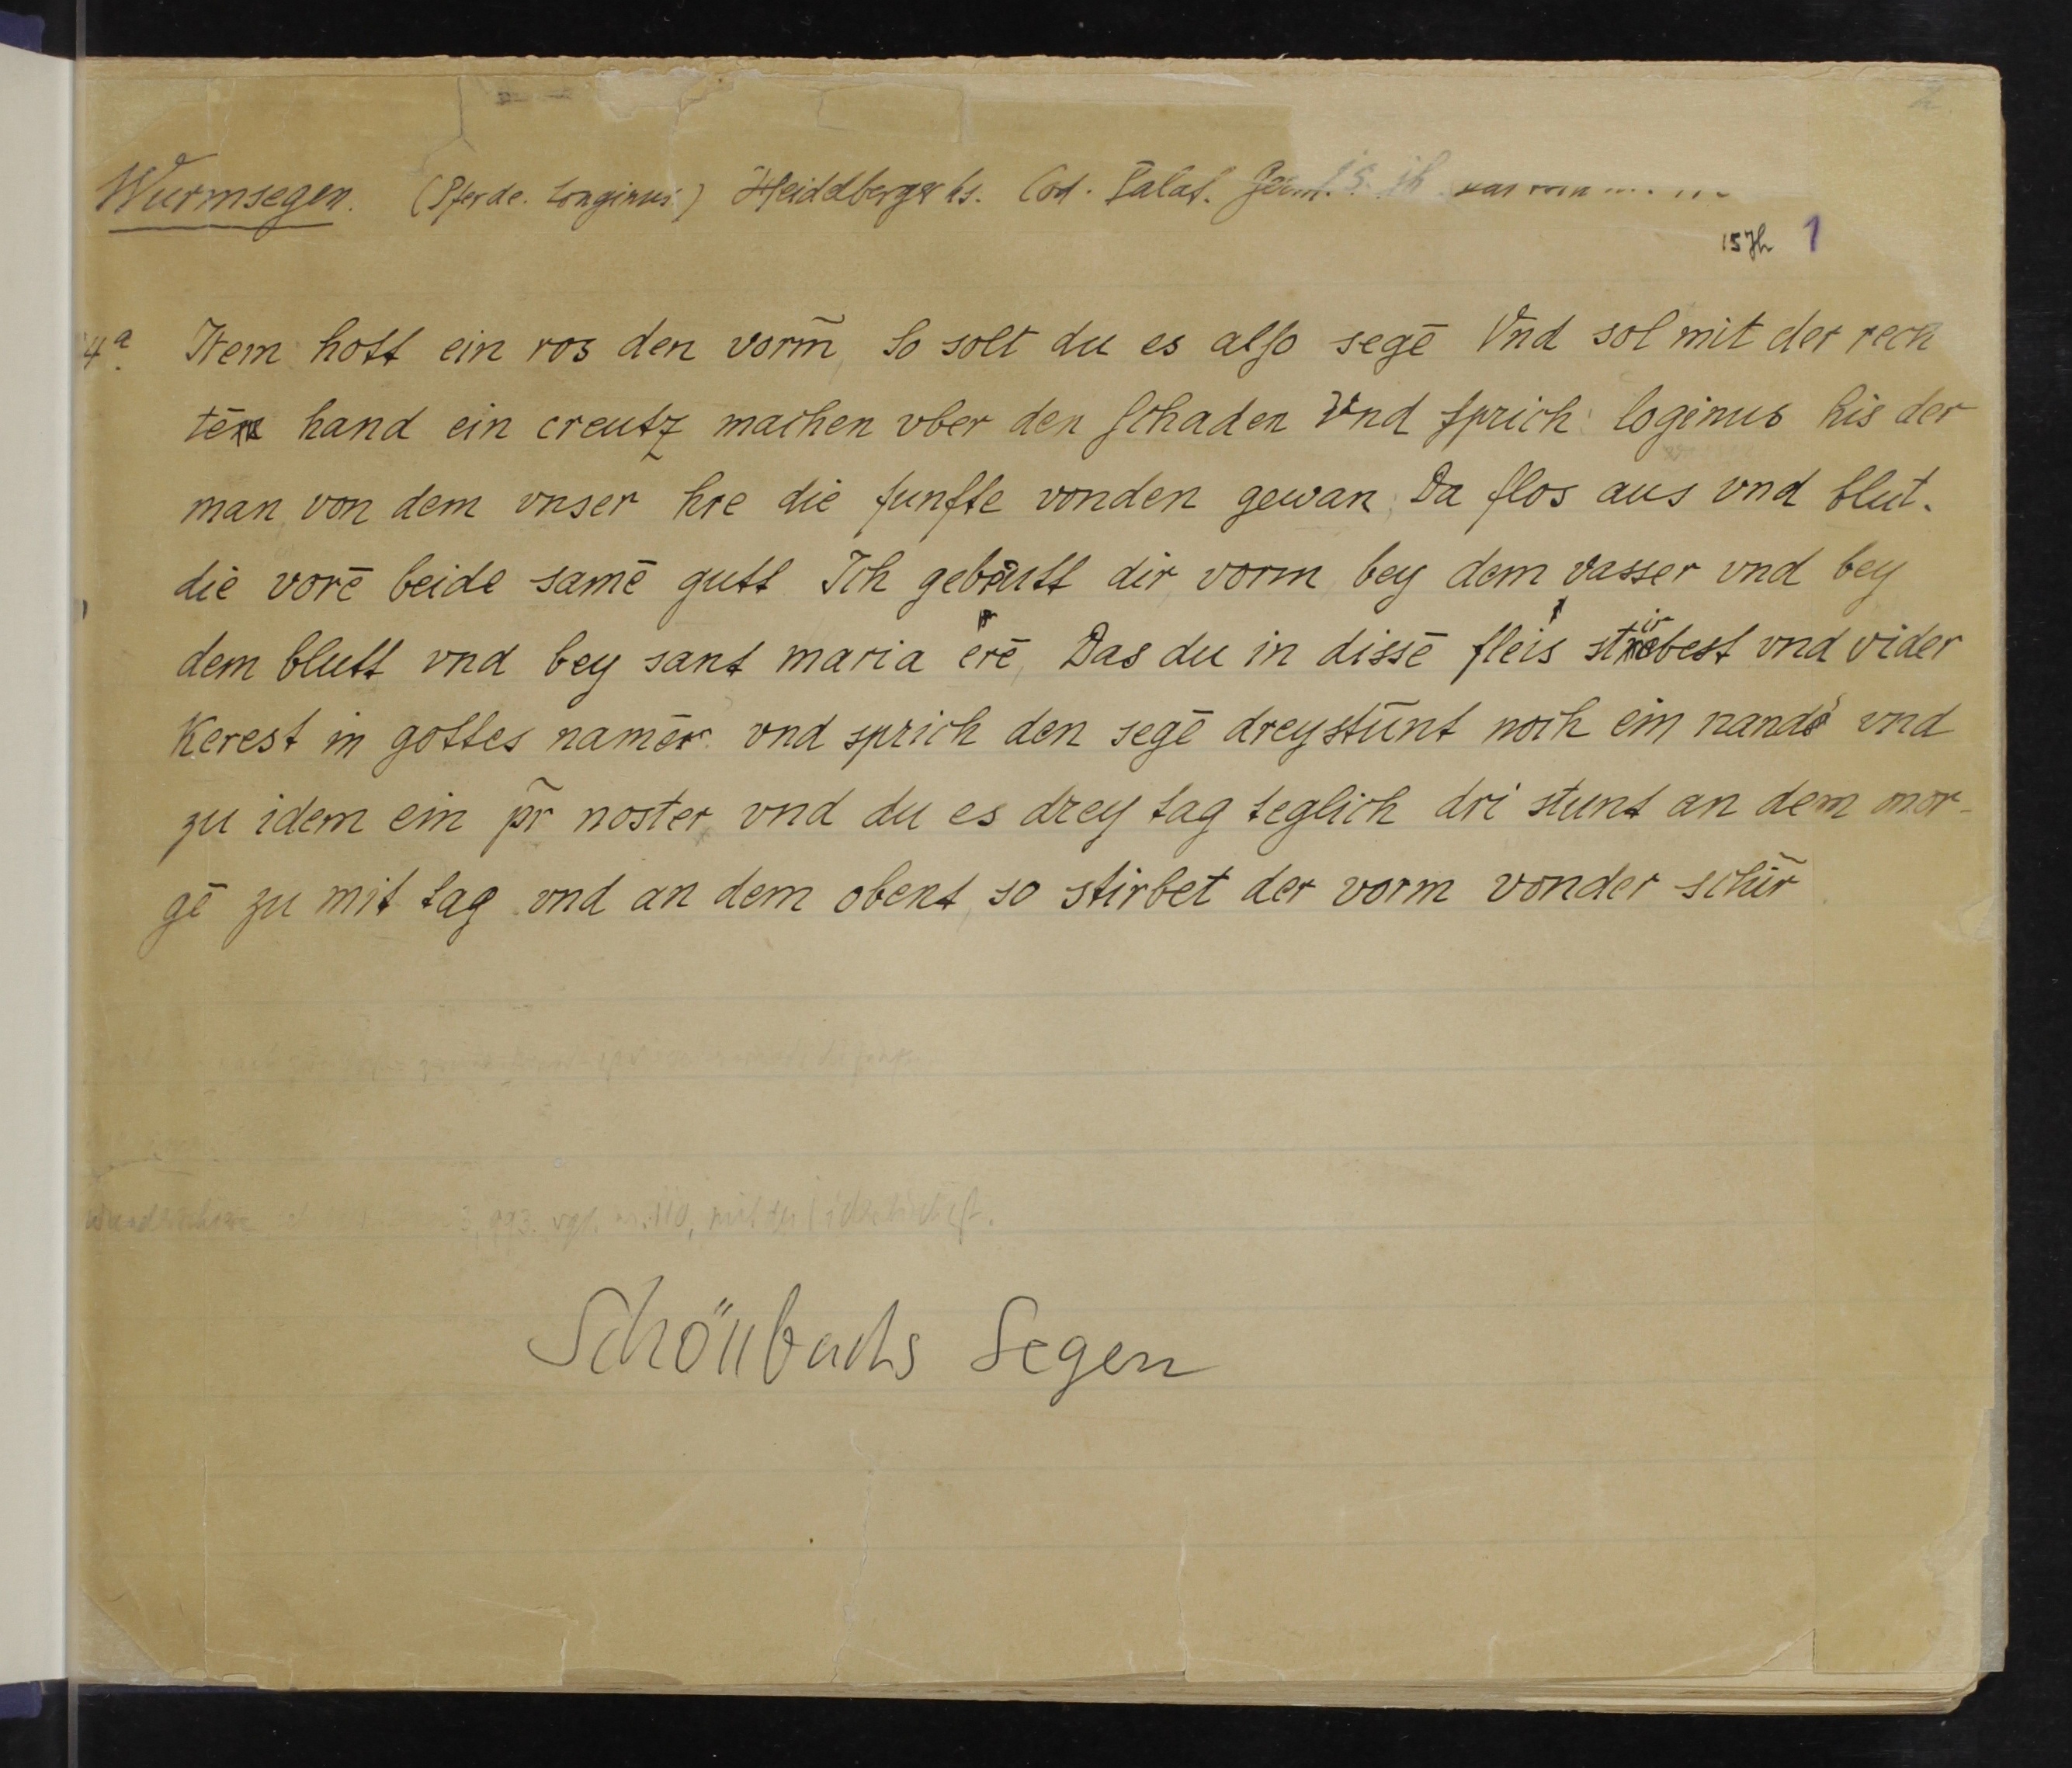 2
Wurmsegen. (Pferde. Longinus.) Heidelberger hs. Cod. Palat. Germ.
15 Jh 1
4a. Item hott ein ros den vorm̄, So solt du es alſo segē Vnd sol mit der rech
tē hand ein creutz machen vber den ſchaden Vnd ſprich: loginus his der
man, von dem vnser hre die funfte vonden gewan, Da flos aus vnd blut.
die vorē beide samē gutt Ich gebeutt dir, vorm, bey dem vasser vnd bey
dem blutt vnd bey sant maria erē, Das du in dissē fleis stirbest vnd vider
Kerest in gottes namēr vnd sprich den segē dreystūnt noch ein nandē vnd
zu idem ein pr̄ noster vnd du es drey tag teglich dri stunt an dem mor-
gē zu mit tag vnd an dem obent, so stirbet der vorm vonder schir̄
993. vgl.
Schönbachs Segen